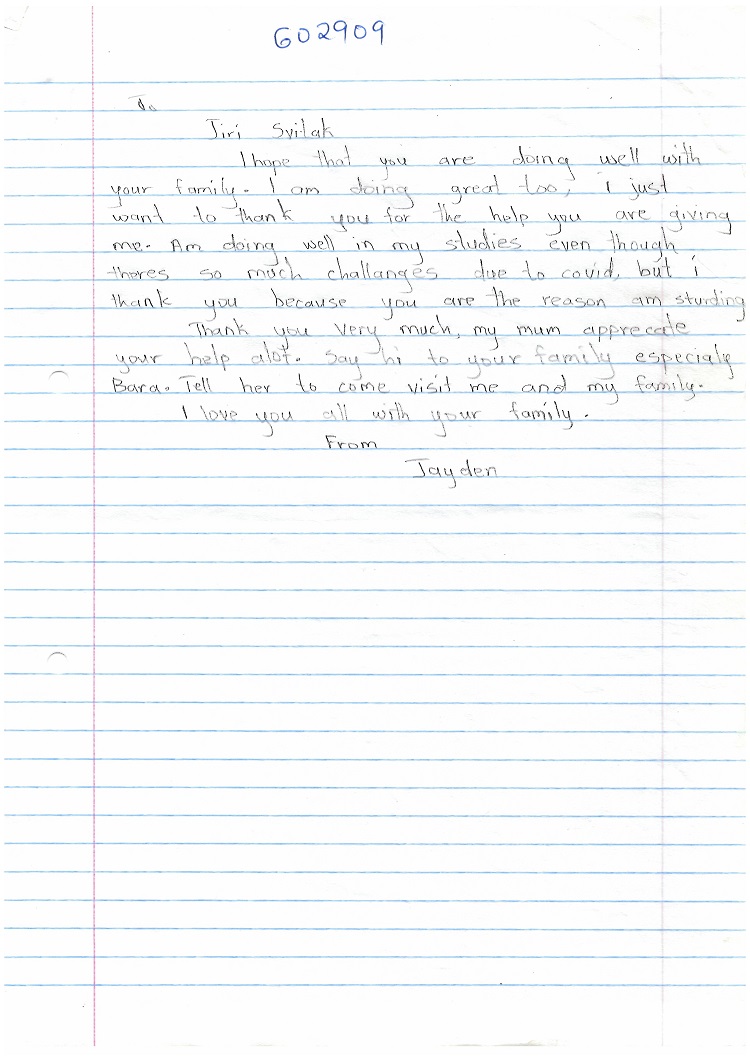 G02909
To
Jiri Svitak
I hope that you are doing well with
your family. I am doing great too, i just
want to thank you for the help you are giving
me. Am doing well in my studies even though
thores so much challanges due to covid, but i
thank you because you are the reason am sturding
Thank you Very much, my mum apprecate
your help alot. Say hi to your family especialy
Bara. Tell her to come visit me and my family.
I love you all with your family.
From
Jayden